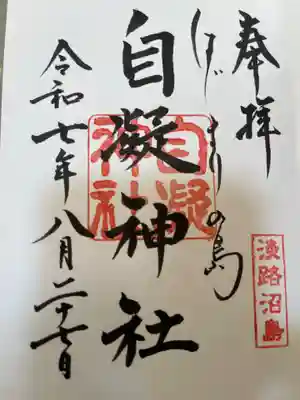 奉拝
はじまりの島
淡路沼島
自凝神社
自凝神社
令和七年八月二十七日